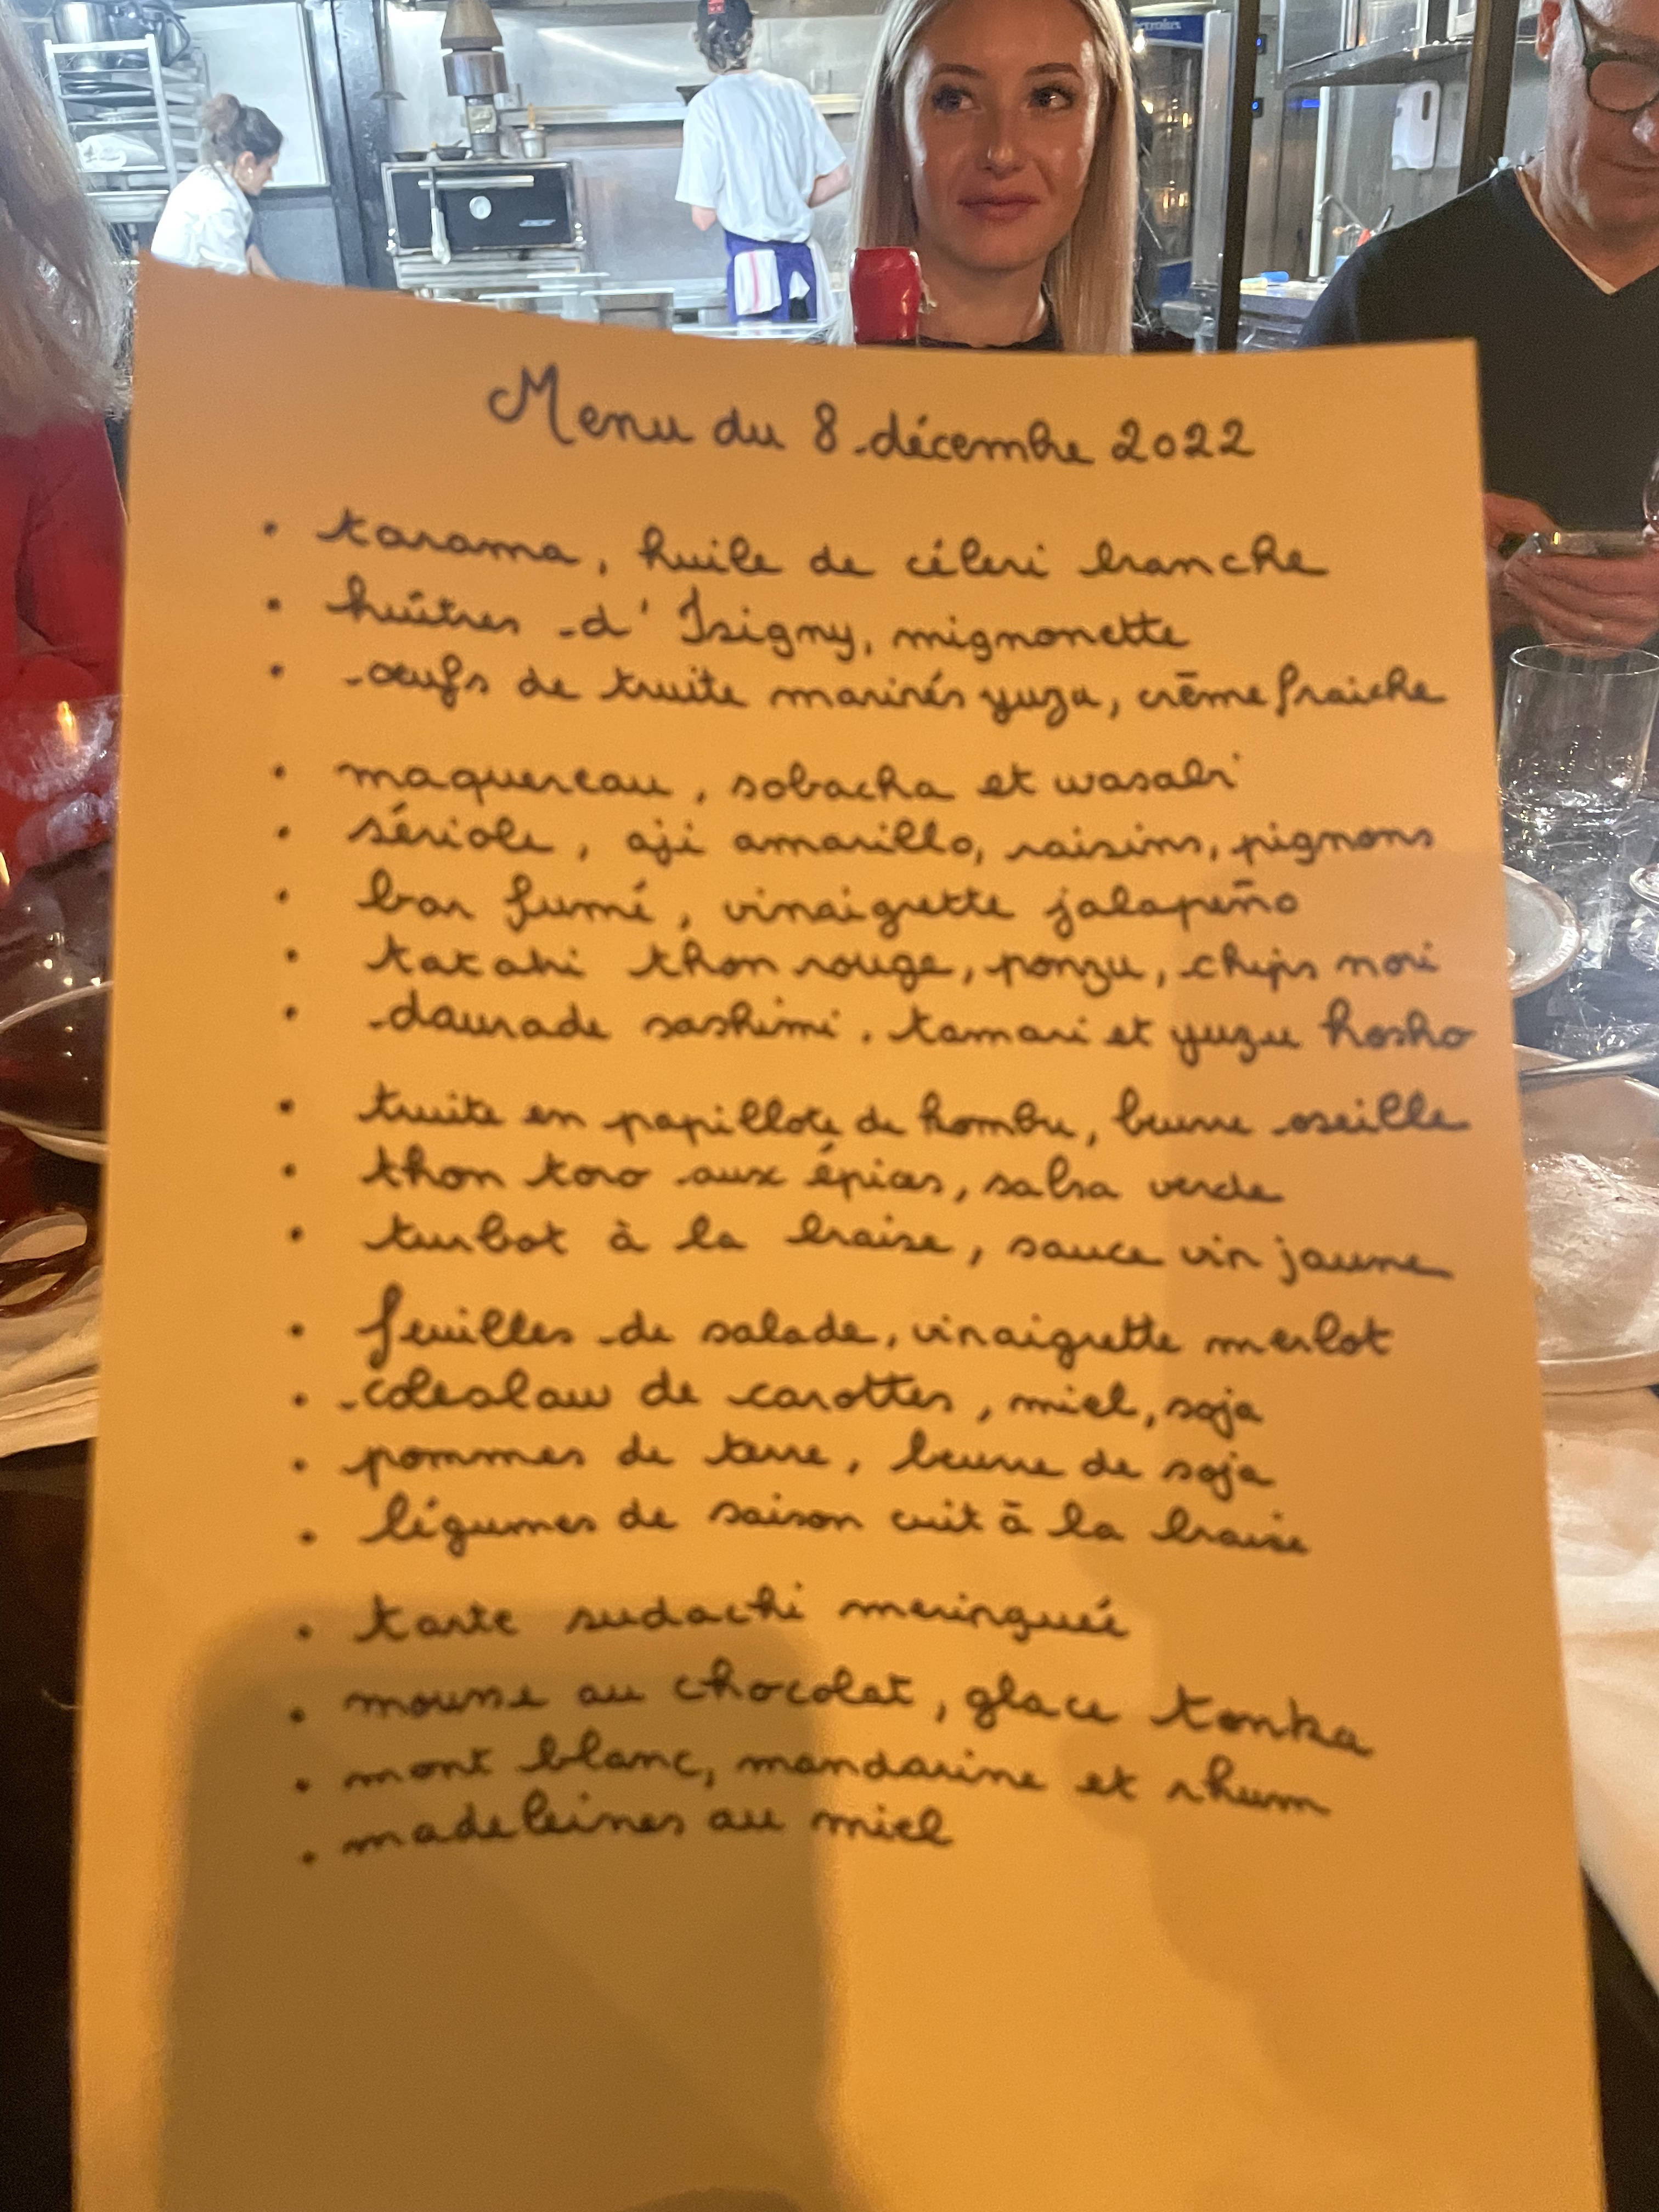 Menu du 8 décembre 2022
• tarama, huile de céleri branche
• huîtres d'Isigny, mignonette
• oeufs de truite marinés yuzu, crème fraiche
• maquereau, sobacha et wasabi
• sériole, aji amarillo, raisins, pignons
• bar fumé, vinaigrette jalapeño
• tataki thon rouge, ponzu, chips nori
• daurade sashimi, tamari et yuzu kosho
• truite en papillote de kombu, beurre oseille
• thon toro aux épices, salsa verde
• turbot à la braise, sauce vin jaune
• feuilles de salade, vinaigrette merlot
• coleslaw de carottes, miel, soja
• pommes de terre, beurre de soja
• légumes de saison cuit à la braise
• tarte sudachi meringuée
• mousse au chocolat, glace tonka
• mont blanc, mandarine et rhum
• madeleines au miel